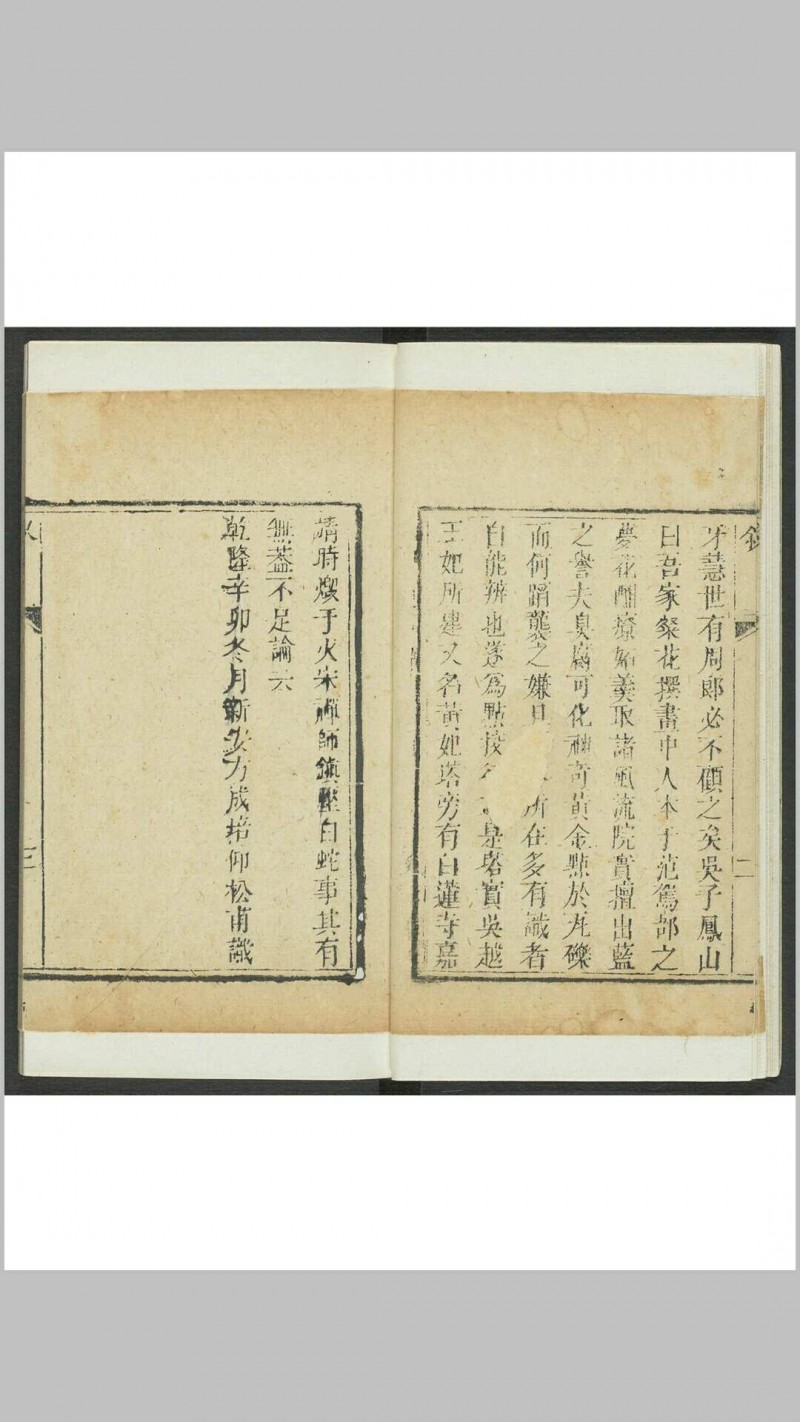 牙慧世有周郎必不顧之矣吳子鳳山
曰吾家粲花撰畫中人本于范駕部之
夢花酣療妬羹取諸風流院實擅出藍
之譽夫臭腐可化神奇黃金點於瓦礫
而何蹈襲之嫌且所在多有識者
自能辨也遂為點授是塔實吳越
王妃所建又名黃妃塔旁有白蓮寺嘉
靖時燬于火宋禪師鎮壓白蛇事其有
無蓋不足論云
乾隆辛卯冬月新安方成培仰松甫識
二
三